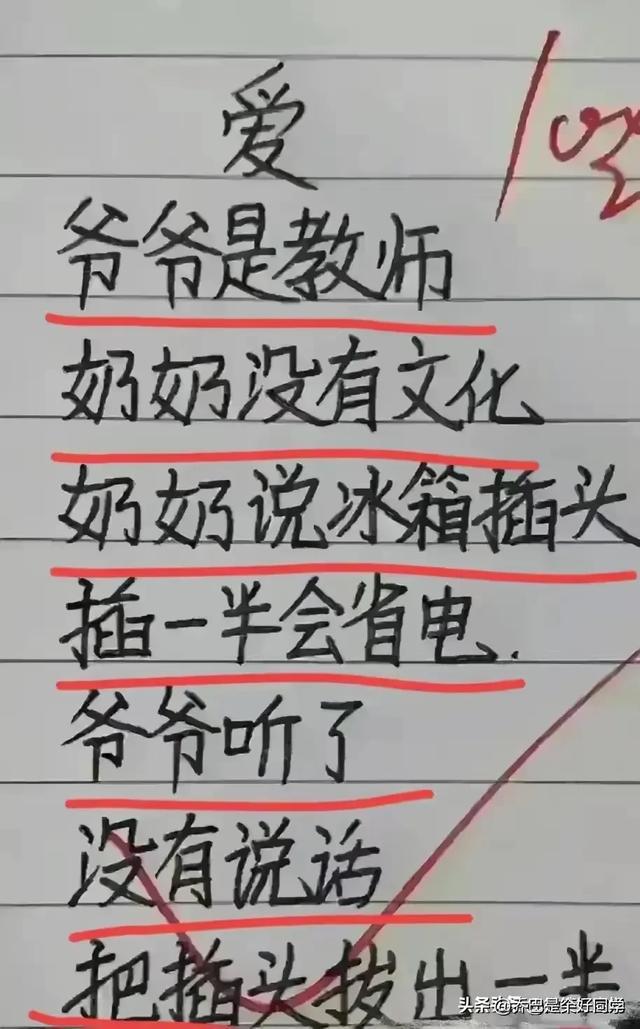 爱
爷爷是教师
奶奶没有文化
奶奶说冰箱插头
插一半会省电.
爷爷听了
没有说话
把插头拔出一半
头条 @乔巴是个好同学